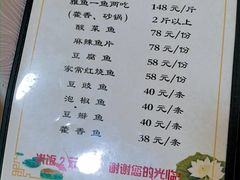 雅鱼一鱼两吃 148元/斤
(藿香、砂锅) 2斤以上
酸菜鱼 78元/份
麻辣鱼片 78元/份
豆腐鱼 58元/份
家常红烧鱼 58元/份
豆豉鱼 40元/条
泡椒鱼 40元/条
豆瓣鱼 40元/条
藿香鱼 38元/条
谢谢您的光临